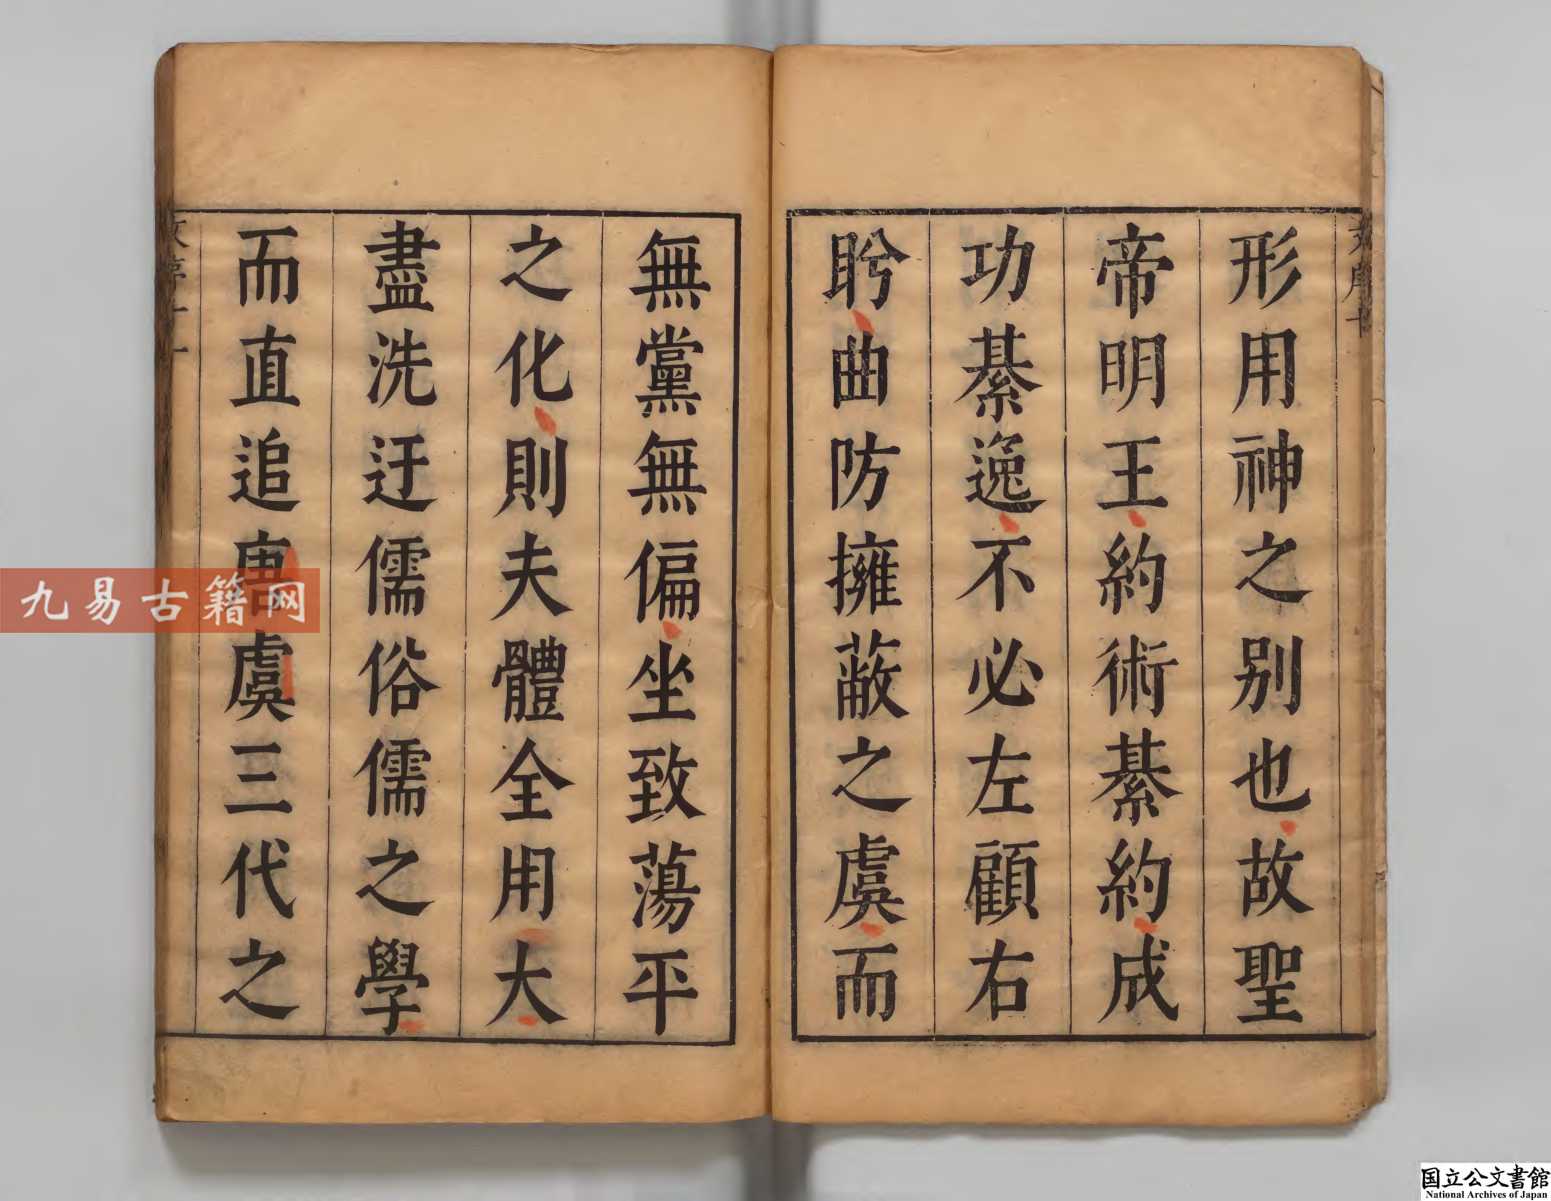 形用神之别也故聖
帝明王約術綦約成
功綦逸不必左顧右
盻曲防擁蔽之虞而
無黨無偏坐致蕩平
之化則夫體全用大
盡洗迂儒俗儒之學
而直追唐虞三代之
九易古籍网
国立公文書館
National Archives of Japan